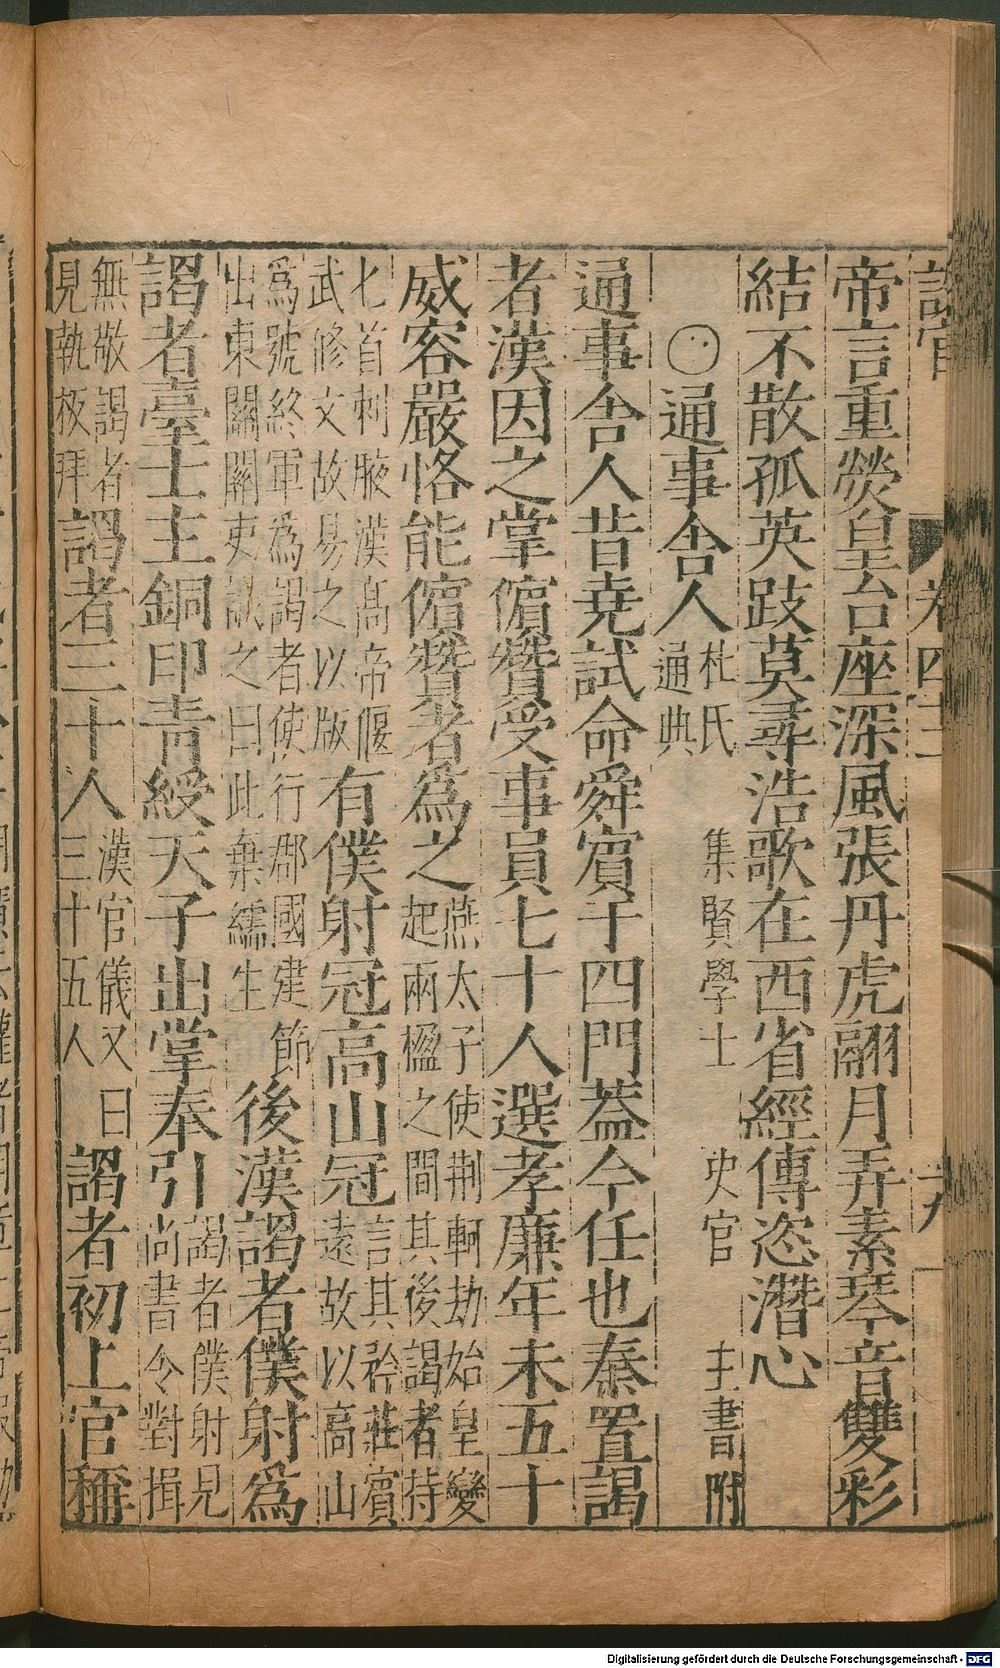 卷四三
帝言重熒皇台座深風張丹虎翮月弄素琴音雙彩
結不散孤英跂莫尋浩歌在西省經傳恣潛心
○通事舍人杜氏通典 集賢學士 史官 主書附
通事舍人昔堯試命舜賓于四門蓋今任也秦置謁
者漢因之掌儐贊受事員七十人選孝廉年未五十
威容嚴恪能儐贊者爲之燕太子使荆軻劫始皇變
起兩楹之間其後謁者持
匕首刺腋漢高帝偃
武修文故易之以版有僕射冠高山冠言其矜莊賓
遠故以高山
爲號終軍爲謁者使行郡國建節
出東關關吏識之曰此棄繻生後漢謁者僕射爲
謁者臺主銅印青綬天子出掌奉引謁者僕射見
尚書令對揖
無敬謁者
見執板拜謁者三十人漢官儀又曰
三十五人謁者初上官稱
Digitalisierung gefördert durch die Deutsche Forschungsgemeinschaft - DFG